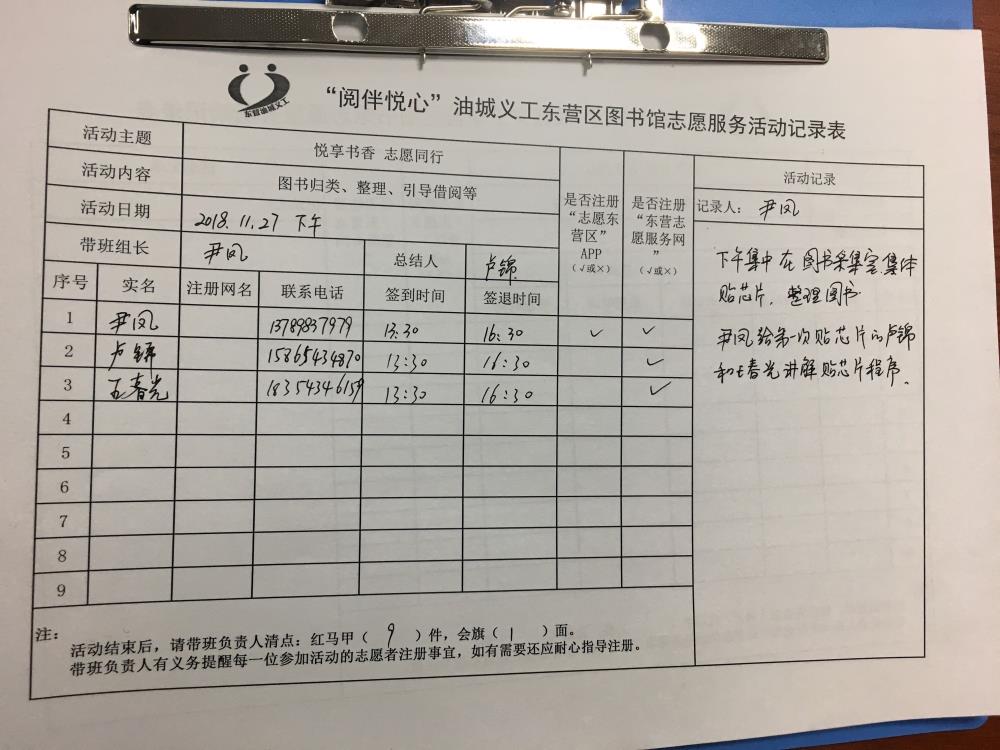 东营油城义工
“阅伴悦心”油城义工东营区图书馆志愿服务活动记录表
活动主题 悦享书香 志愿同行
活动内容 图书归类、整理、引导借阅等
活动日期 2018.11.27 下午
带班组长 尹凤 总结人 卢锦
是否注册“志愿东营区”APP（√或×）
是否注册“东营志愿服务网”（√或×）
序号 实名 注册网名 联系电话 签到时间 签退时间
1 尹凤 13789837979 13:30 16:30 ✓ ✓
2 卢锦 15865434870 13:30 16:30 ✓
3 王春光 18354346159 13:30 16:30 ✓
4
5
6
7
8
9
活动记录
记录人： 尹凤
下午集中在图书采集室集体
贴芯片，整理图书
尹凤给第一次贴芯片的卢锦
和王春光讲解贴芯片程序.
注：
活动结束后，请带班负责人清点：红马甲（ 9 ）件，会旗（ 1 ）面。
带班负责人有义务提醒每一位参加活动的志愿者注册事宜，如有需要还应耐心指导注册。